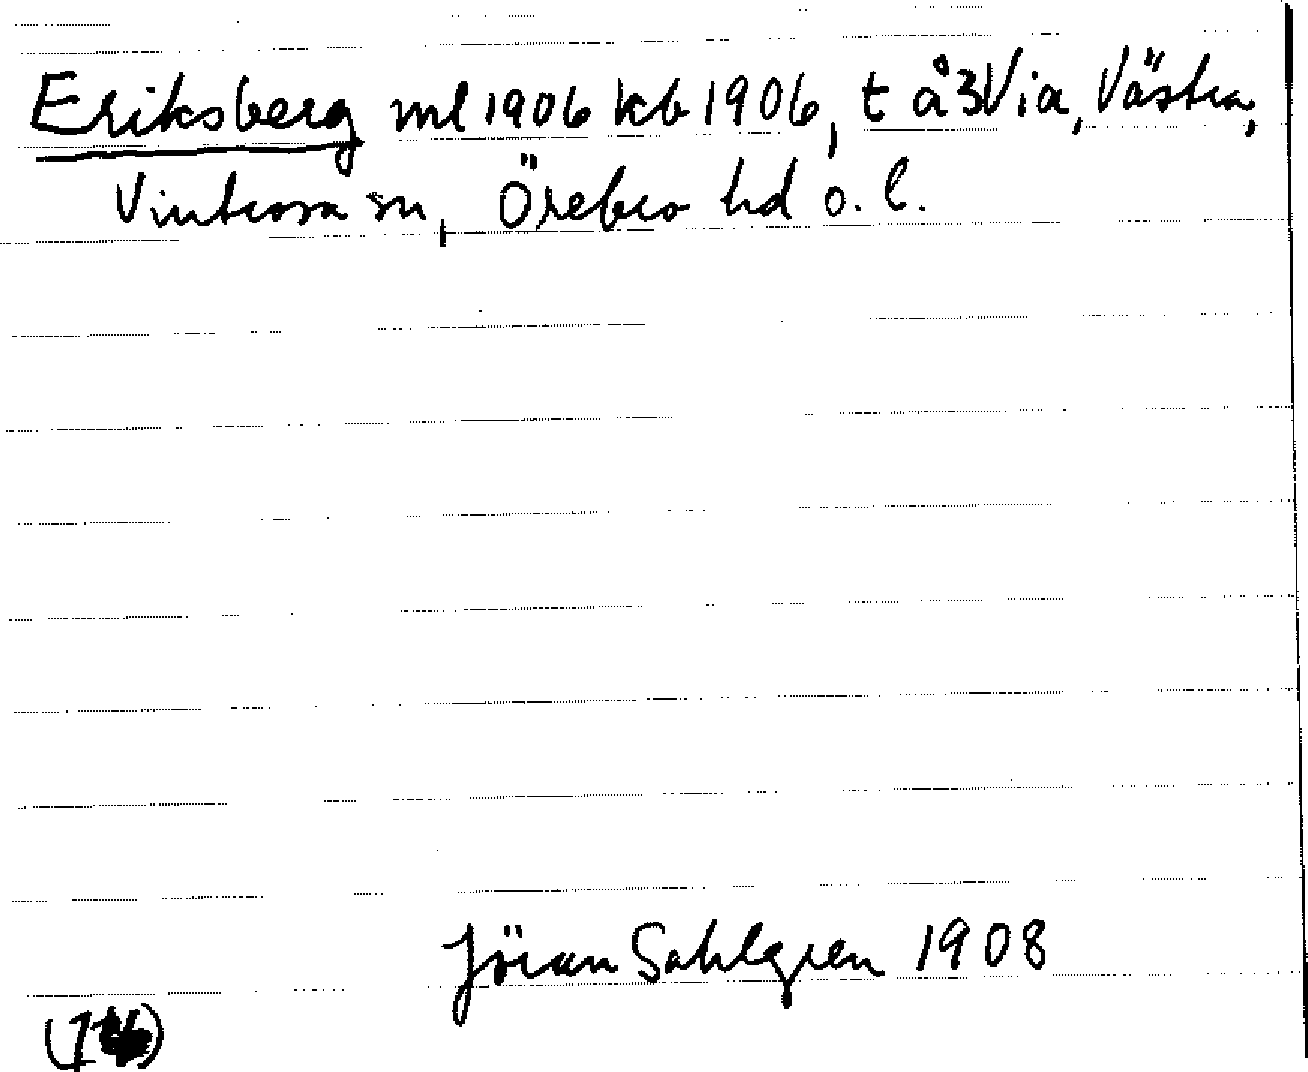 Eriksberg ml 1906 kb 1906, t å 3 Via, Västra,
Vintrosa sn, Örebro hd o. l.
Jöran Sahlgren 1908